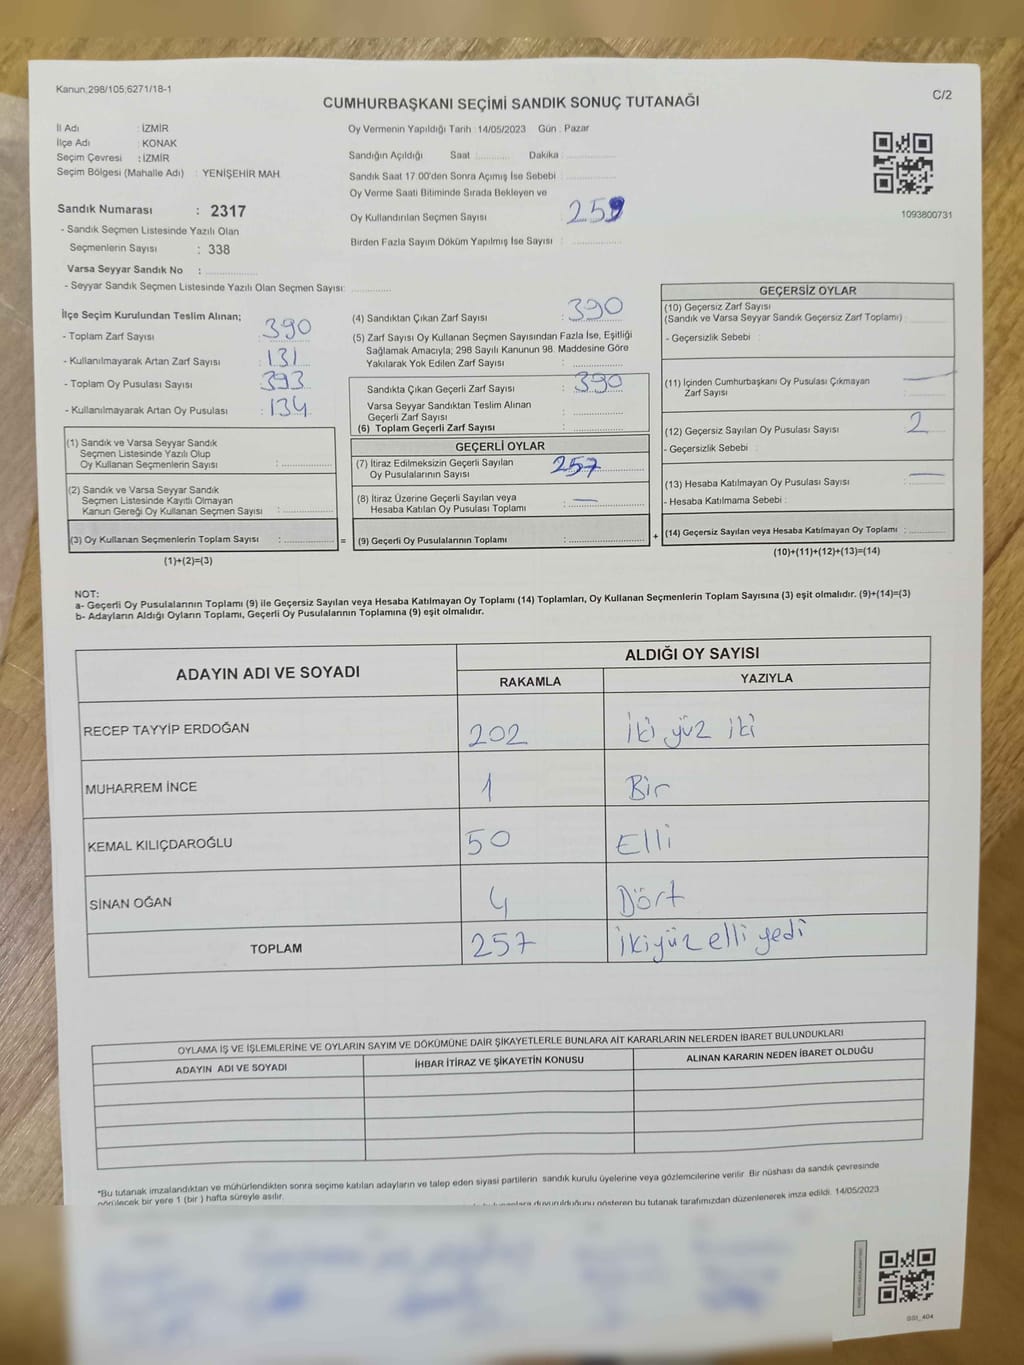 Kanun:298/105;6271/18-1
C/2
CUMHURBAŞKANI SEÇİMİ SANDIK SONUÇ TUTANAĞI
İl Adı : İZMİR
İlçe Adı : KONAK
Seçim Çevresi : İZMİR
Seçim Bölgesi (Mahalle Adı) : YENİŞEHİR MAH
Sandık Numarası : 2317
- Sandık Seçmen Listesinde Yazılı Olan
Seçmenlerin Sayısı : 338
Varsa Seyyar Sandık No :
- Seyyar Sandık Seçmen Listesinde Yazılı Olan Seçmen Sayısı:
Oy Vermenin Yapıldığı Tarih : 14/05/2023 Gün : Pazar
Sandığın Açıldığı Saat Dakika
Sandık Saat 17:00'den Sonra Açımış İse Sebebi :
Oy Verme Saati Bitiminde Sırada Bekleyen ve
Oy Kullandırılan Seçmen Sayısı : 259
Birden Fazla Sayım Döküm Yapılmış İse Sayısı :
1093800731
İlçe Seçim Kurulundan Teslim Alınan;
- Toplam Zarf Sayısı : 390
- Kullanılmayarak Artan Zarf Sayısı : 131
- Toplam Oy Pusulası Sayısı : 393
- Kullanılmayarak Artan Oy Pusulası : 134
(1) Sandık ve Varsa Seyyar Sandık
Seçmen Listesinde Yazılı Olup
Oy Kullanan Seçmenlerin Sayısı :
(2) Sandık ve Varsa Seyyar Sandık
Seçmen Listesinde Kayıtlı Olmayan
Kanun Gereği Oy Kullanan Seçmen Sayısı :
(3) Oy Kullanan Seçmenlerin Toplam Sayısı : =
(1)+(2)=(3)
(4) Sandıktan Çıkan Zarf Sayısı : 390
(5) Zarf Sayısı Oy Kullanan Seçmen Sayısından Fazla İse, Eşitliği
Sağlamak Amacıyla; 298 Sayılı Kanunun 98. Maddesine Göre
Yakılarak Yok Edilen Zarf Sayısı :
Sandıkta Çıkan Geçerli Zarf Sayısı : 390
Varsa Seyyar Sandıktan Teslim Alınan
Geçerli Zarf Sayısı :
(6) Toplam Geçerli Zarf Sayısı :
GEÇERLİ OYLAR
(7) İtiraz Edilmeksizin Geçerli Sayılan
Oy Pusulalarının Sayısı : 257
(8) İtiraz Üzerine Geçerli Sayılan veya
Hesaba Katılan Oy Pusulası Toplamı : —
(9) Geçerli Oy Pusulalarının Toplamı : +
GEÇERSİZ OYLAR
(10) Geçersiz Zarf Sayısı
(Sandık ve Varsa Seyyar Sandık Geçersiz Zarf Toplamı) :
- Geçersizlik Sebebi :
(11) İçinden Cumhurbaşkanı Oy Pusulası Çıkmayan
Zarf Sayısı : —
(12) Geçersiz Sayılan Oy Pusulası Sayısı : 2
- Geçersizlik Sebebi :
(13) Hesaba Katılmayan Oy Pusulası Sayısı : —
- Hesaba Katılmama Sebebi :
(14) Geçersiz Sayılan veya Hesaba Katılmayan Oy Toplamı :
(10)+(11)+(12)+(13)=(14)
NOT:
a- Geçerli Oy Pusulalarının Toplamı (9) ile Geçersiz Sayılan veya Hesaba Katılmayan Oy Toplamı (14) Toplamları, Oy Kullanan Seçmenlerin Toplam Sayısına (3) eşit olmalıdır. (9)+(14)=(3)
b- Adayların Aldığı Oyların Toplamı, Geçerli Oy Pusulalarının Toplamına (9) eşit olmalıdır.
ADAYIN ADI VE SOYADI
ALDIĞI OY SAYISI
RAKAMLA YAZIYLA
RECEP TAYYİP ERDOĞAN 202 İki yüz iki
MUHARREM İNCE 1 Bir
KEMAL KILIÇDAROĞLU 50 Elli
SİNAN OĞAN 4 Dört
TOPLAM 257 İkiyüz elli yedi
OYLAMA İŞ VE İŞLEMLERİNE VE OYLARIN SAYIM VE DÖKÜMÜNE DAİR ŞİKAYETLERLE BUNLARA AİT KARARLARIN NELERDEN İBARET BULUNDUKLARI
ADAYIN ADI VE SOYADI İHBAR İTİRAZ VE ŞİKAYETİN KONUSU ALINAN KARARIN NEDEN İBARET OLDUĞU
*Bu tutanak imzalandıktan ve mühürlendikten sonra seçime katılan adayların ve talep eden siyasi partilerin sandık kurulu üyelerine veya gözlemcilerine verilir. Bir nüshası da sandık çevresinde
görülecek bir yere 1 (bir) hafta süreyle asılır.
duyurulduğunu gösteren bu tutanak tarafımızdan düzenlenerek imza edildi. 14/05/2023